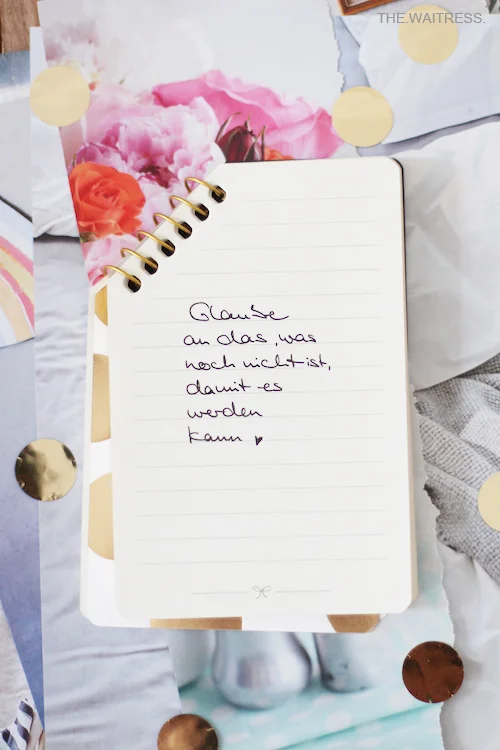 THE.WAITRESS.
Glaube
an das, was
noch nicht ist,
damit es
werden
kann ♥